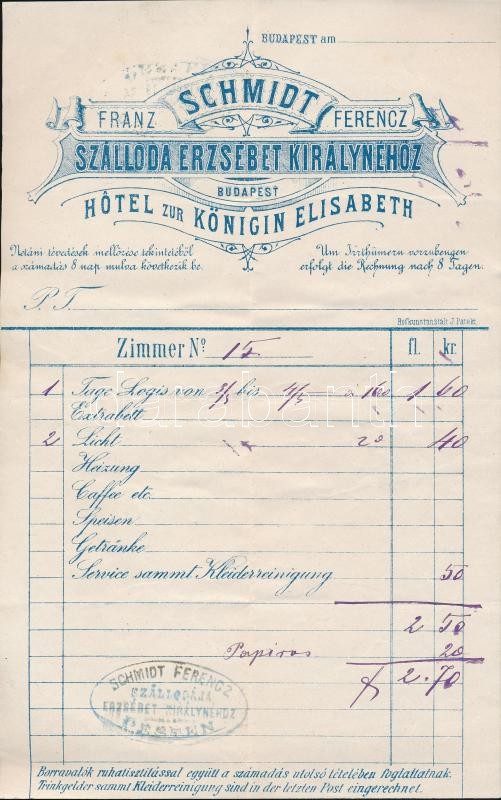 BUDAPEST am
SCHMIDT
FRANZ FERENCZ
SZÁLLODA ERZSÉBET KIRÁLYNÉHOZ
BUDAPEST
HÔTEL ZUR KÖNIGIN ELISABETH
Netáni tévedések mellőzése tekintetéből
a számadás 8 nap mulva következik be.
Um Irrthümern vorzubeugen
erfolgt die Rechnung nach 8 Tagen.
P. T.
Hofkunstanstalt J. Patzelt
Zimmer No. 15 fl. kr.
1 Tage Logis von 3/3 bis 4/3 a 160 1 60
Extrabett
2 Licht 20 40
Heizung
Caffée etc.
Speisen
Getränke
Service sammt Kleiderreinigung 50
2 50
Papiros 20
f 2.70
SCHMIDT FERENCZ
SZÁLLODÁJA
ERZSÉBET KIRÁLYNÉHOZ
PESTEN
Borravalók ruhatisztítással együtt a számadás utolsó tételében foglaltatnak.
Trinkgelder sammt Kleiderreinigung sind in der letzten Post eingerechnet.